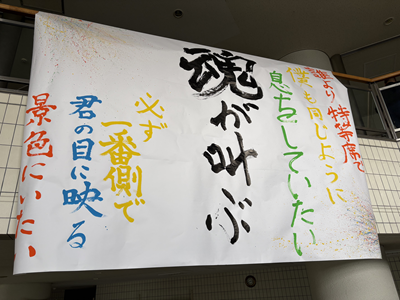 誰より特等席で
僕と同じように
息をしていたい
魂が叫ぶ
必ず
一番側で
君の目に映る
景色にいたい